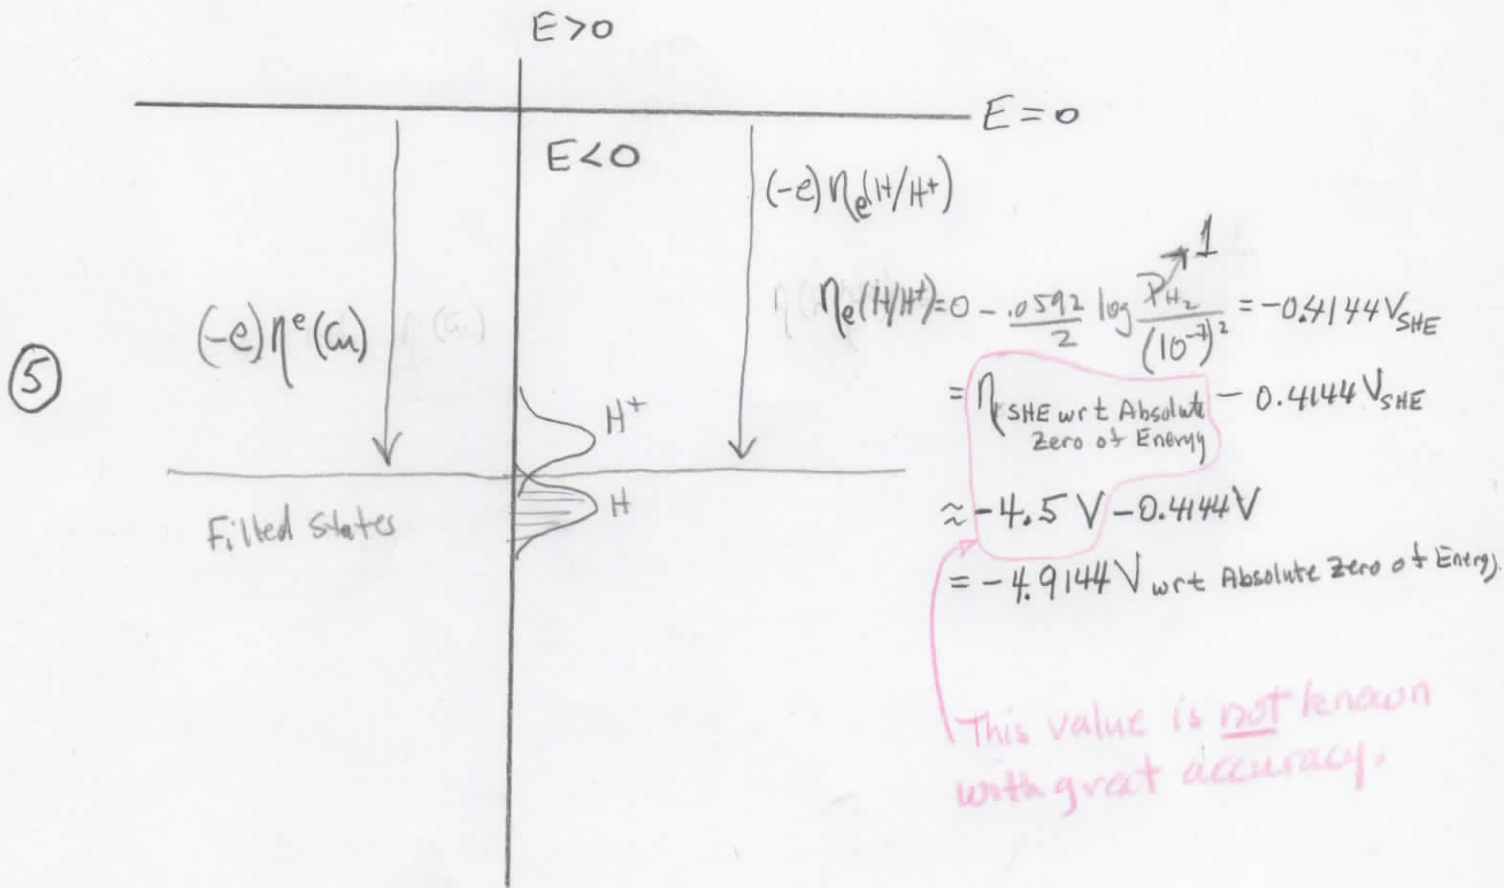 E>0
E=0
E<0
(-e)ηe(H/H+)
(-e)ηe(Cu)
1
ηe(H/H+)=0 - .0592/2 log PH2/(10^-7)^2 = -0.4144VSHE
= ηSHE wrt Absolute Zero of Energy - 0.4144VSHE
≈ -4.5 V -0.4144V
= -4.9144V wrt Absolute Zero of Energy.
5
H+
H
Filled States
This value is not known
with great accuracy.